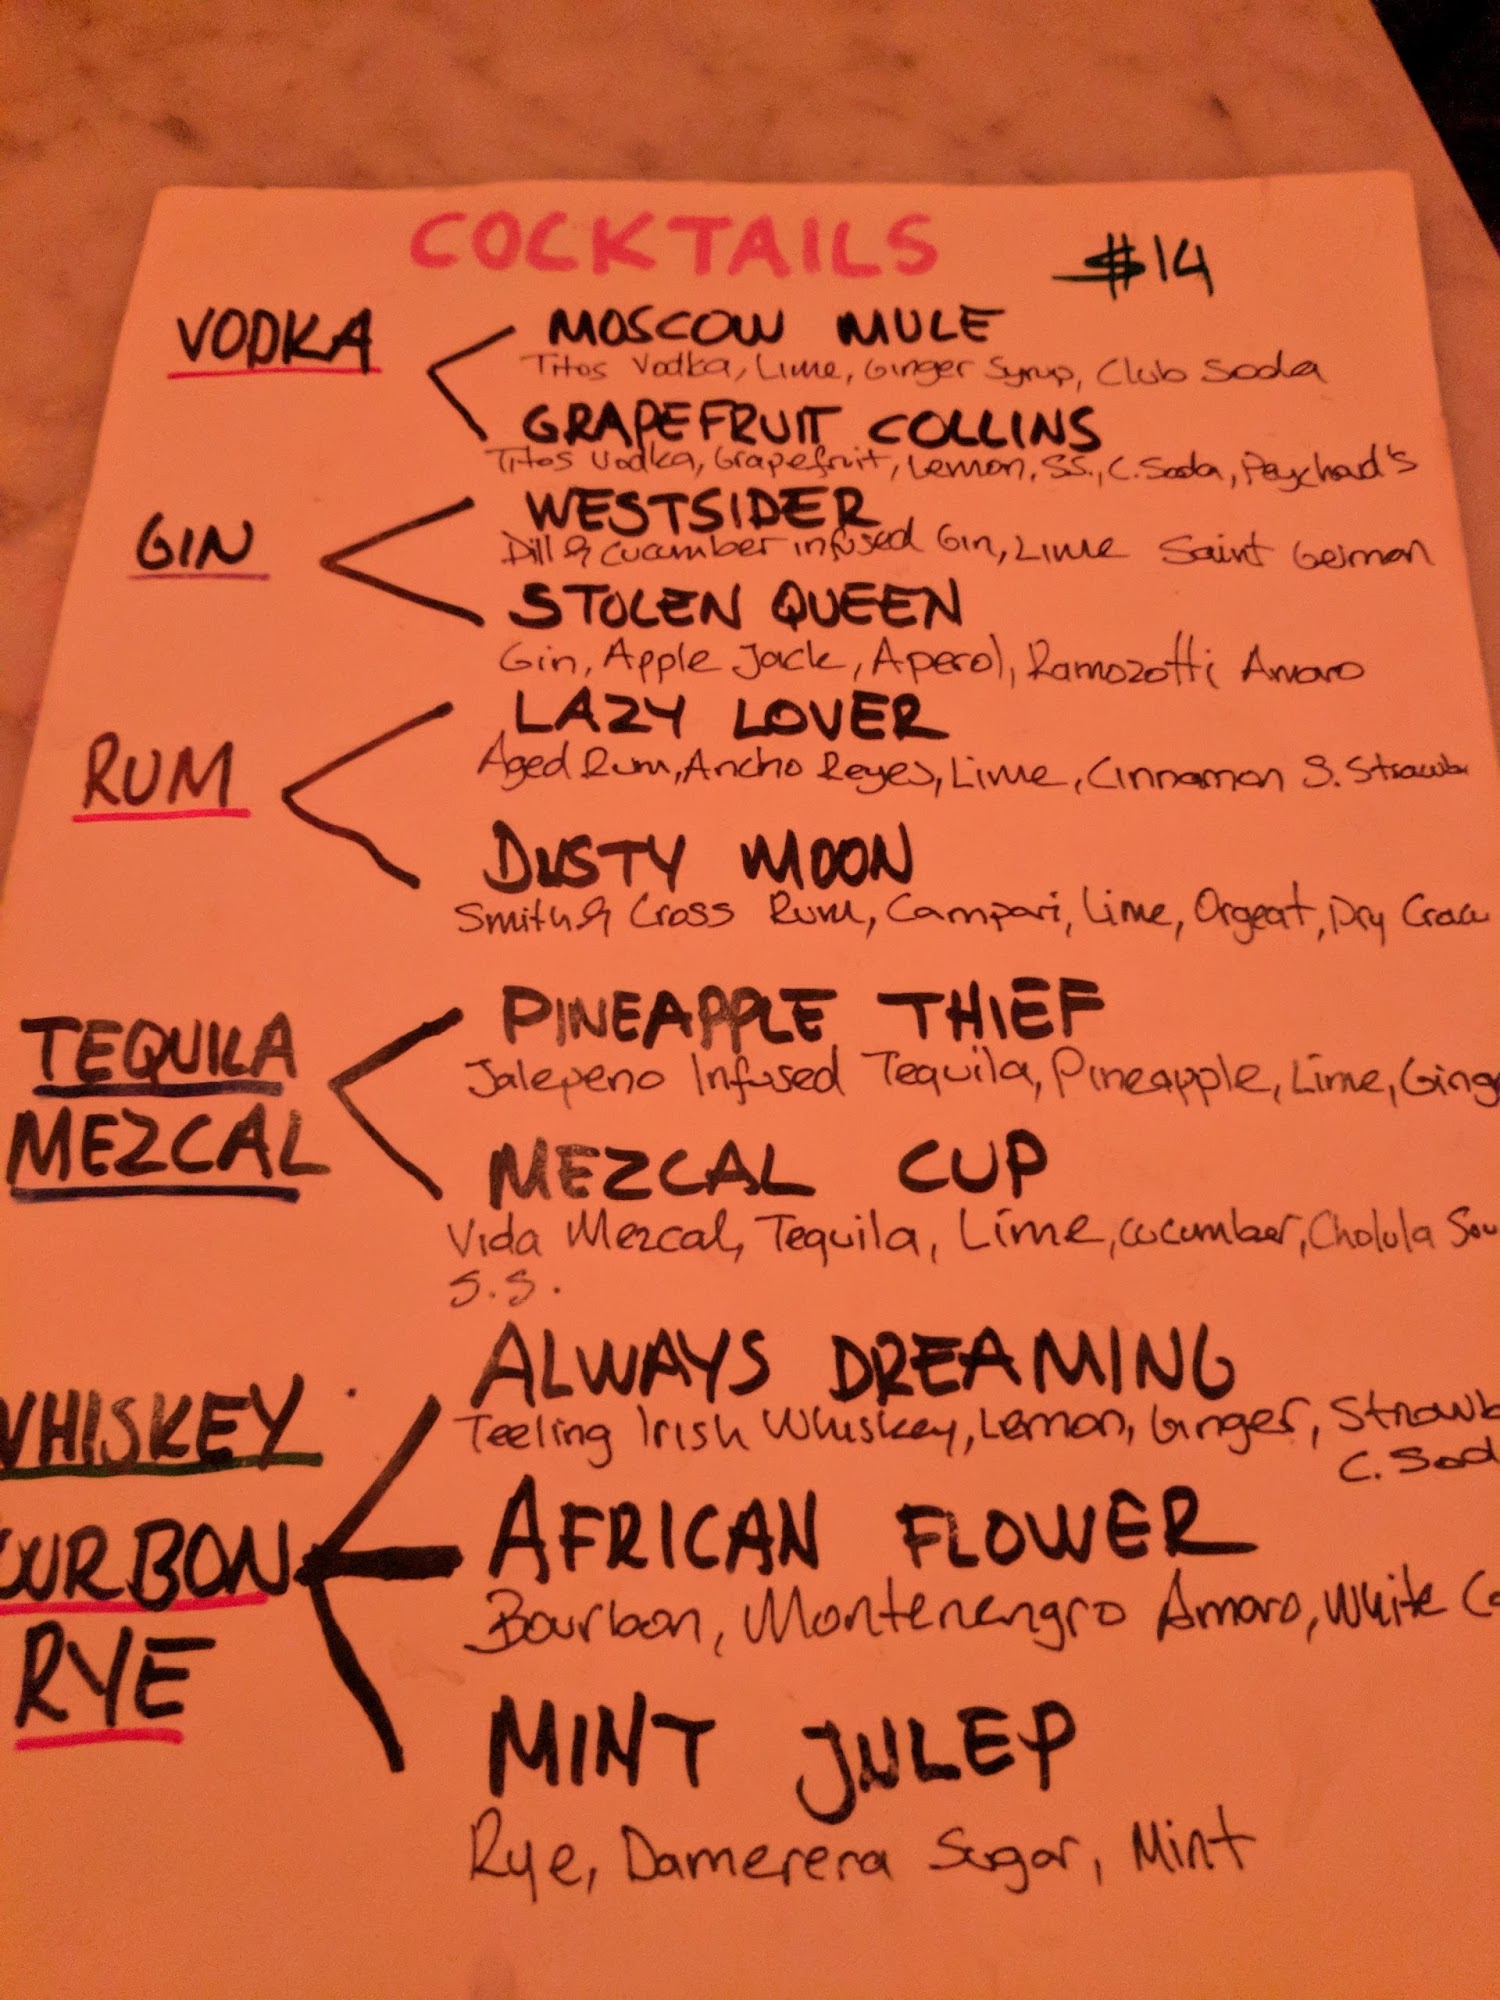 COCKTAILS $14
VODKA
MOSCOW MULE
Titos Vodka, Lime, Ginger Syrup, Club Soda
GRAPEFRUIT COLLINS
Titos Vodka, Grapefruit, Lemon, SS., C. Soda, Peychaud's
GIN
WESTSIDER
Dill & Cucumber infused Gin, Lime Saint German
STOLEN QUEEN
Gin, Apple Jack, Aperol, Ramozotti Amaro
RUM
LAZY LOVER
Aged Rum, Ancho Reyes, Lime, Cinnamon S. Strawb
DUSTY MOON
Smith & Cross Rum, Campari, Lime, Orgeat, Dry
TEQUILA
MEZCAL
PINEAPPLE THIEF
Jalepeno Infused Tequila, Pineapple, Lime, Ginge
MEZCAL CUP
Vida Mezcal, Tequila, Lime, cucumber, Cholula
S.S.
WHISKEY
OURBON
RYE
ALWAYS DREAMING
Teeling Irish Whiskey, Lemon, Ginger, Strawb
C. Sod
AFRICAN FLOWER
Bourbon, Montenengro Amaro, White
MINT JULEP
Rye, Damerera Sugar, Mint